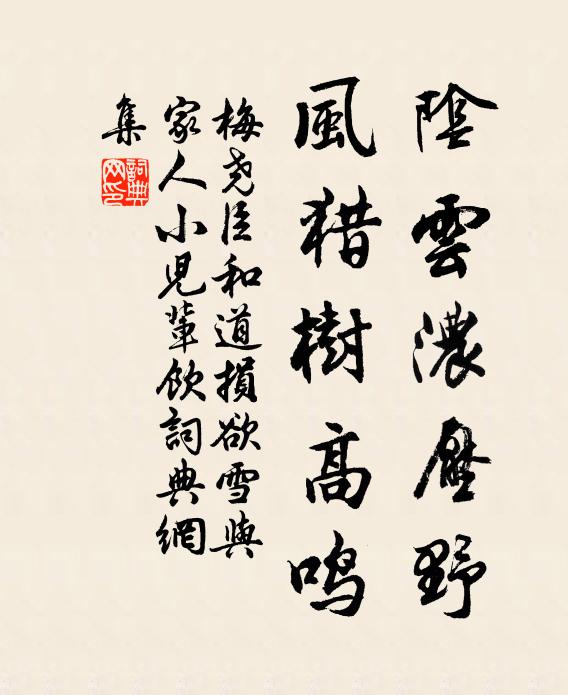 陰雲濃壓野
風猎樹高鳴
梅尧臣和道損欲雪與
家人小児輩飲詞典網
集
詞典網印